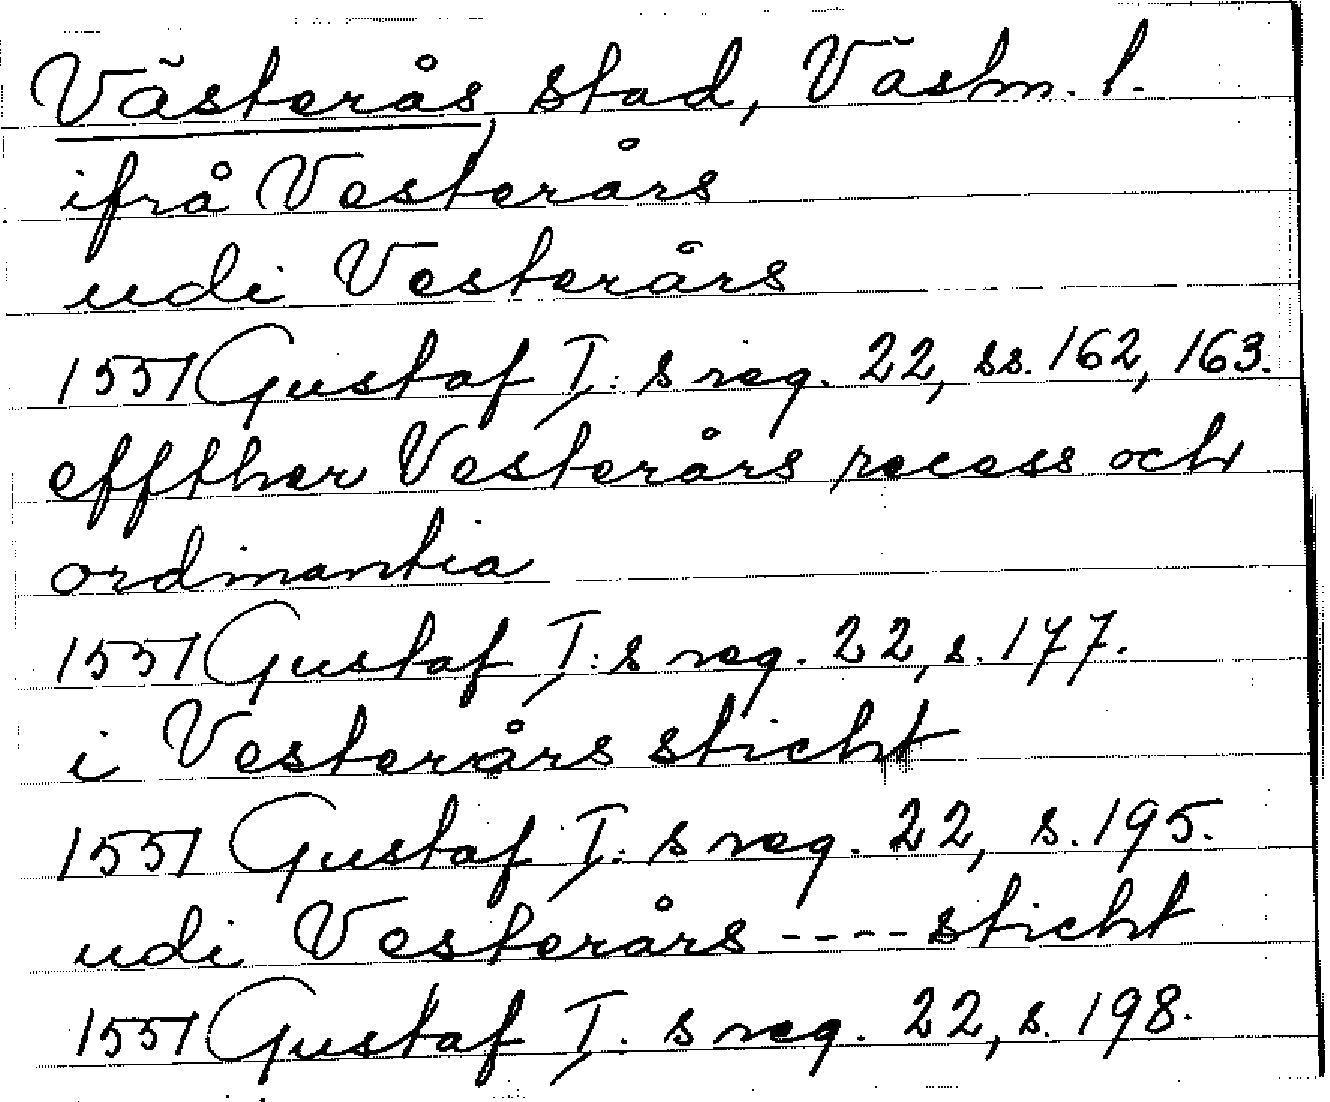 Västerås stad, Västm. l.
ifrå Vesterårs
udi Vesterårs
1551 Gustaf I: s reg. 22, ss. 162, 163.
effther Vesterårs recess och
ordinantia
1551 Gustaf I: s reg. 22, s. 177.
i Vesterårs sticht
1551 Gustaf I: s reg. 22, s. 195.
udi Vesterårs ---- sticht
1551 Gustaf I. s reg. 22, s. 198.